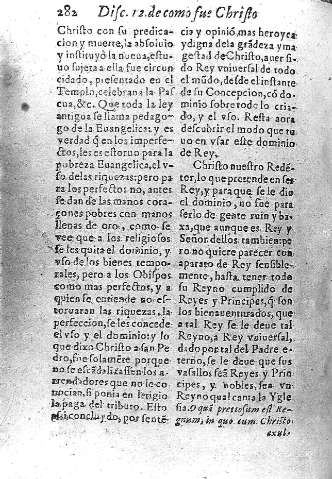 282 Disc. 12. de como fue Christo
Christo con su predicacion
y muerte, la absoluio
y instituyó la nueua, estuuo
sujeta a ella fue circuncidado,
presentado en el
Templo, celebraua la Pascua,
&c. Que toda la ley
antigua se llama pedagogo
de la Euangelica: y es
verdad q̃ en los imperfectos,
les es estoruo para la
pobreza Euangelica, el vso
de las riquezas: pero para
los perfectos no, antes
se dan de las manos coraçones
pobres con manos
llenas de oro, como se
vee que a los religiosos
se les quita el dominio, y
vso de los bienes temporales,
pero a los Obispos
como mas perfectos, y a
quien se entiende no estoruaran
las riquezas, la
perfeccion, se les concede
el vso y el dominio: y lo
que dixo Christo a san Pedro,
fue solamẽte porque
no se escãdalizassen los arrendadores
que no le conocian,
si ponia en letigio
la paga del tributo. Esto
assi concluydo, por sentẽcia
y opinió, mas heroyca
y digna de la grãdeza y magestad
de Christo, auer sido
Rey vniuersal de todo
el mũdo, desde el instante
de su Concepcion, cõ dominio
sobre todo lo criado,
y el vso. Resta aora
descubrir el modo que tuuo
en vsar este dominio
de Rey.
Christo nuestro Redẽtor,
lo que pretende en ser
Rey, y para que se le dio
el dominio, no fue para
serlo de gente ruin y baxa,
que aunque es Rey y
Señor dellos tambien: pero
no quiere parecer con
aparato de Rey sensiblemente,
hasta tener todo
su Reyno cumplido de
Reyes y Principes, q̃ son
los bienauenturados, que
a tal Rey se le deue tal
Reyno, a Rey vniuersal,
dado por tal del Padre eterno,
se le deue que sus
vasallos seã Reyes y Principes,
y nobles, sea vn
Reyno qual canta la Yglesia.
O quã pretiosum est Regnum,
in quo cum Christo
exul-